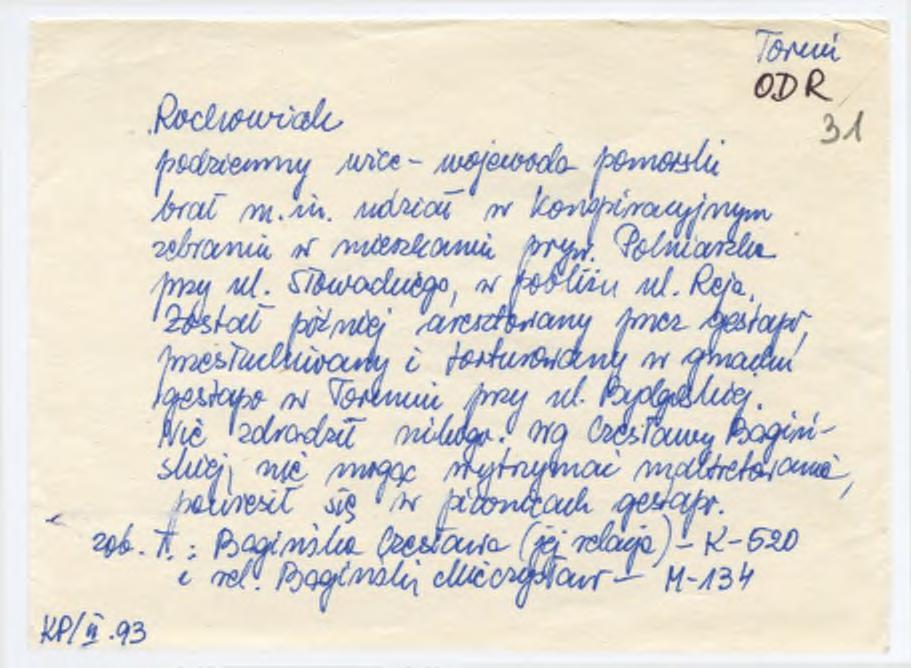 Toruń
ODR
31
Rochowiak
podziemny wice-wojewoda pomorski
brał m.in. udział w konspiracyjnym
zebraniu w mieszkaniu pryw. Polniaszka
przy ul. Słowackiego, w pobliżu ul. Reja.
Został później aresztowany przez gestapo,
przesłuchiwany i torturowany w gmachu
gestapo w Toruniu przy ul. Bydgoskiej.
Nie zdradził nikogo. wg Czesławy Bagiń-
skiej, nie mogąc wytrzymać maltretowania,
powiesił się w piwnicach gestapo.
zob. T.: Bagińska Czesława (jej relacja) – K-520
i rel. Bagiński Mieczysław – M-134
KP/II.93